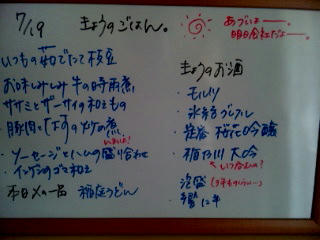 7/19 きょうのごはん。
いつもの茹でたて枝豆
お味しみしみ牛の時雨煮
ササミとザーサイの和えもの
豚肉と
ソーセージとハムの盛り合わせ
・インゲンのゴマ和え
本日〆の一品 稲庭うどん
あづいよー。
明日会社だよー。
きょうのお酒
・モルツ
・氷結グレフル
・桜花吟醸
・稲乃川 大吟
・泡盛
・響 12年